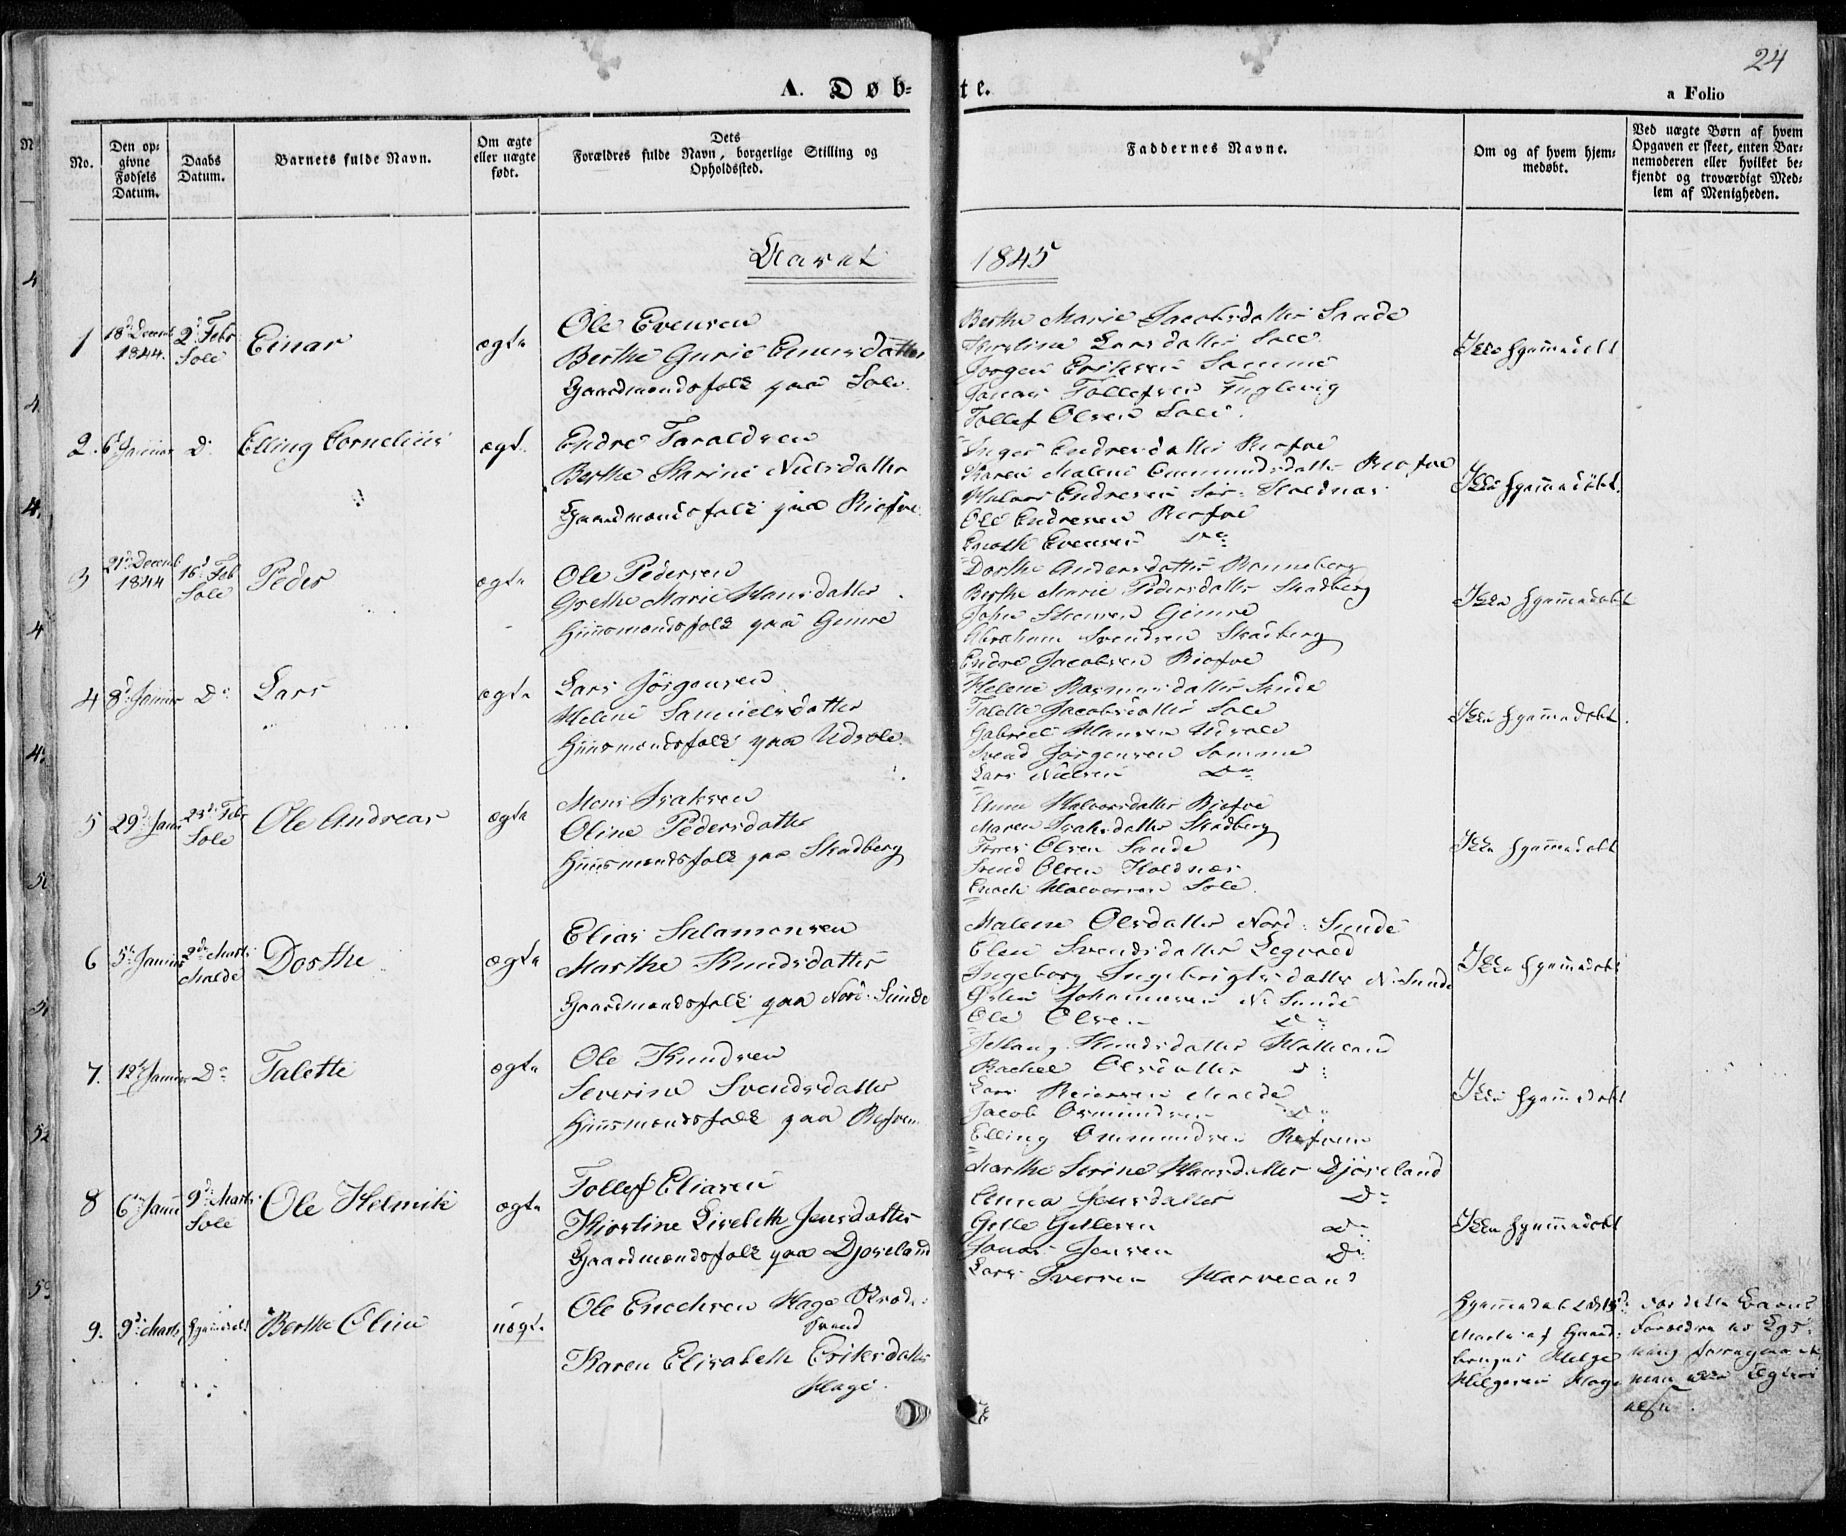 24
A. Døbte.
a Folio
No.
Den opgivne Fødsels Datum.
Daabs Datum.
Barnets fulde Navn.
Om ægte eller uægte født.
Dets Forældres fulde Navn, borgerlige Stilling og Opholdssted.
Faddernes Navne.
Om og af hvem hjemmedøbt.
Ved uægte Børn af hvem Opgaven er skeet, enten Barnemoderen eller hvilket bekjendt og troværdigt Medlem af Menigheden.
Aaret 1845
1 18d Decemb 1844. 2d Febr Sole Einar ægte
Ole Evensen
Berthe Gurie Einersdatter
Gaardmandsfolk paa Sole.
Berthe Marie Jacobsdatter Sande
Larsdatter Sole
Jørgen Eriksen Sømme
Jonas Tollefsen Fuglevig
Tollef Olsen Sole.
Ikke hjemmedøbt
2. 6 Januar Do Elling Cornelius ægte
Endre Taraldsen
Berthe Karine Nielsdatter
Gaardmandsfolk paa Risfoe
Inger Endresdatter Risfoe
Karen Malene Emmundsdatter Risfoe
Halvor Endresen Holdnæs
Ole Endresen Risfoe
Enoch Evensen Do
Ikke hjemmedøbt.
3 21d Decemb 1844 16d Feb Sole Peder ægte
Ole Pedersen
Grethe Marie Hansdatter
Huusmandsfolk paa Gimre
Dorthe Andersdatter Ronneberg
Berthe Marie Pedersdatter Skadberg
John Gimre
Abraham Svendsen Skadberg
Endre Jacobsen Risfoe
Ikke hjemmedøbt
4 8d Januar Do Lars ægte
Lars Jørgensen
Helene Samuelsdatter
Huusmandsfolk paa Udsole.
Helene Rasmusdatter Sunde
Talette Jacobsdatter Sole
Gabriel Hansen Udsole
Svend Jørgensen Sømme
Lars Nielsen Do
Ikke hjemmedøbt.
5 29d Janu 23d Feb Sole Ole Andreas ægte
Mons Isaksen
Oline Pedersdatter
Huusmandsfolk paa Skadberg
Anne Halvorsdatter Risfoe
Maren Isaksdatter Skadberg
Torres Olsen Sande
Svend Olsen Holdnæs
Enoch Halvorsen Sole.
Ikke hjemmedøbt
6 5te Januar 2de Marts Malde Dorthe ægte
Elias Salamonsen
Marthe Knudsdatter
Gaardmandsfolk paa Nord: Sunde
Malene Olsdatter Nord: Sunde
Elen Svendsdatter
Ingeborg Ingebrigtsdatter N: Sunde
Johannesen N: Sunde
Ole Olsen Do
Ikke hjemmedøbt
7. 12te Januar Do Talette ægte
Ole Knudsen
Severine Svendsdatter
Huusmandsfolk paa Refsnem
Knudsdatter
Rachel Olsdatter Do
Lars Reiersen Malde
Jacob Osmundsen Do
Elling Ommundsen Refsnem
Ikke hjemmedøbt
8 6te Janu 9d Marts Sole Ole Helmik ægte
Tollef Eliasen
Kiirstine Lisebeth Jensdatter
Gaardmandsfolk paa Djøseland
Marthe Serine Hansdatter Djøseland
Anna Jensdatter Do
Gitle Gitlesen Do
Jonas Jensen Do
Lars Sversen Harveland
Ikke hjemmedøbt
9. 9d Marts hjemmedøbt Berthe Oline uægte
Ole Enochsen Hage
Karen Elisabeth Eriksdatter
Hage.
Hjemmedøbt d 15d
Marts af Gaard-
bruger Helge
Helgesen Hage